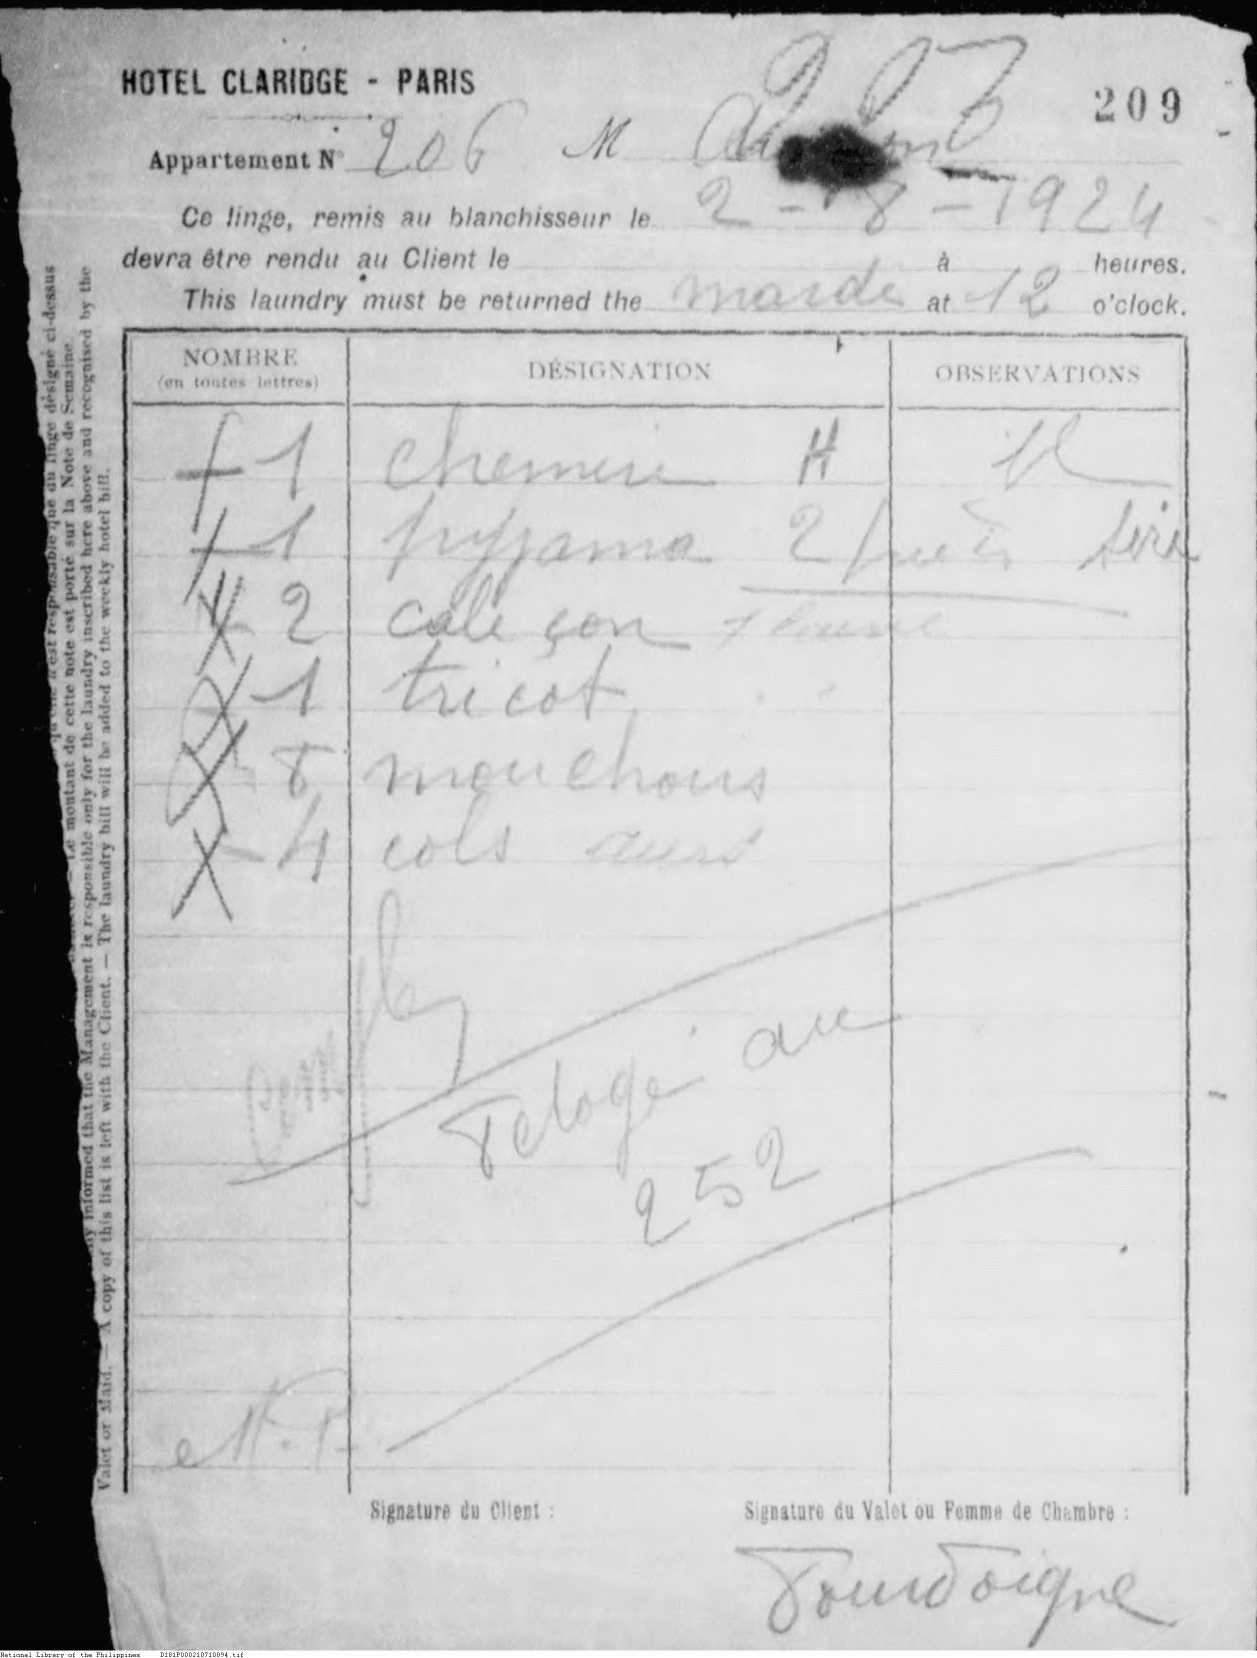 HOTEL CLARIDGE - PARIS
209
Appartement N° 206 M
Ce linge, remis au blanchisseur le 2 - 8 - 1924
devra être rendu au Client le à heures.
This laundry must be returned the mardi at 12 o'clock.
NOMBRE (en toutes lettres) DÉSIGNATION OBSERVATIONS
1 chemise H
1 pyjama 2
2 caleçon
1 tricot
8 mouchoirs
4 cols
au
252
M. P.
Signature du Client : Signature du Valet ou Femme de Chambre :
n'est responsable que du linge désigné ci-dessus
Le montant de cette note est porté sur la Note de Semaine.
informed that the Management is responsible only for the laundry inscribed here above and recognised by the
Valet or Maid. — A copy of this list is left with the Client. — The laundry bill will be added to the weekly hotel bill.
National Library of the Philippines D181P000210710094.tif